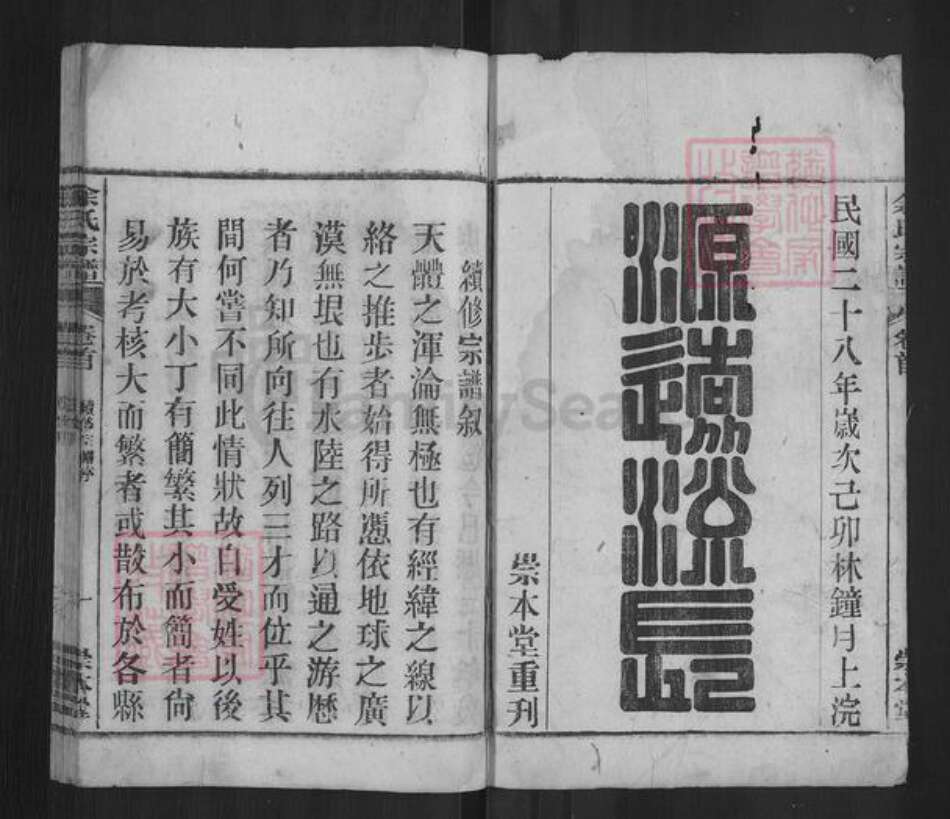 余氏宗譜
卷首
崇本堂
民國二十八年歲次己卯林鐘月上浣
源遠流長
崇本堂重刊
續修宗譜叙
天體之渾淪無極也有經緯之線以
絡之推步者始得所憑依地球之廣
漠無垠也有水陸之路以通之游歷
者乃知所向往人列三才而位乎其
間何嘗不同此情狀故自受姓以後
族有大小丁有簡繁其小而簡者尙
易於考核大而繁者或散布於各縣
余氏宗譜
卷首
續修宗譜叙
一
崇本堂
FamilySearch